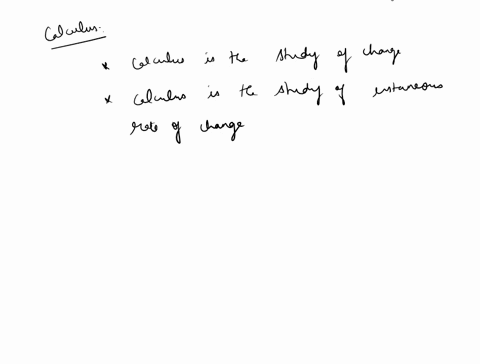 Calculus:
* Calculus is the study of change
* Calculus is the study of instaneous
rate of change